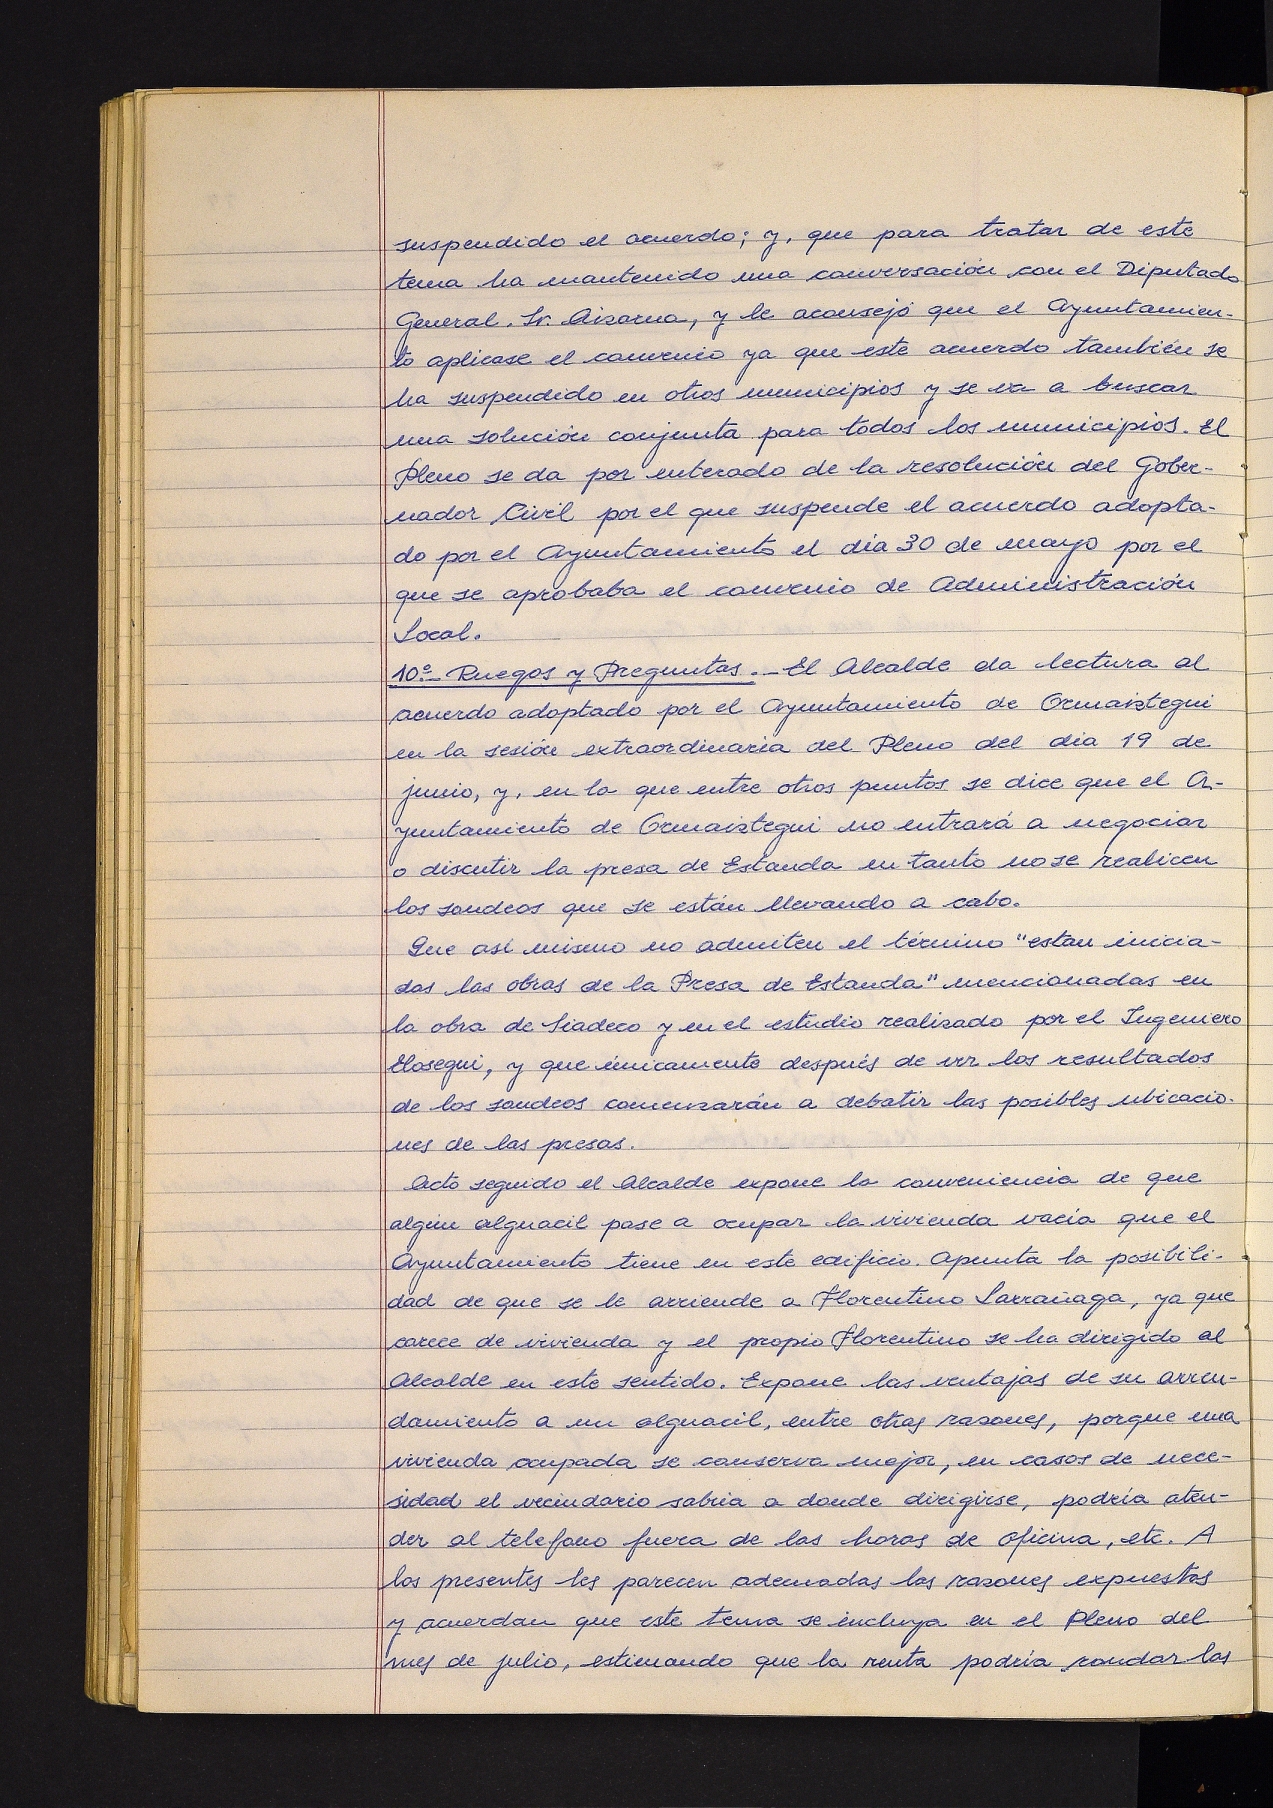 suspendido el acuerdo; y, que para tratar de este
tema ha mantenido una conversación con el Diputado
General, Sr. Aizarna, y le aconsejó que el Ayuntamien-
to aplicase el convenio ya que este acuerdo también se
ha suspendido en otros municipios y se va a buscar
una solución conjunta para todos los municipios. El
Pleno se da por enterado de la resolución del Gober-
nador Civil por el que suspende el acuerdo adopta-
do por el Ayuntamiento el día 30 de mayo por el
que se aprobaba el convenio de Administración
Local.
10º.- Ruegos y Preguntas.- El Alcalde da lectura al
acuerdo adoptado por el Ayuntamiento de Ormaiztegui
en la sesión extraordinaria del Pleno del dia 19 de
junio, y, en la que entre otros puntos se dice que el A-
yuntamiento de Ormaiztegui no entrará a negociar
o discutir la presa de Estanda en tanto no se realicen
los sondeos que se están llevando a cabo.
Que así mismo no admiten el término "estan inicia-
das las obras de la Presa de Estanda" mencionadas en
la obra de Siadeco y en el estudio realizado por el Ingeniero
Elosegui, y que únicamente después de ver los resultados
de los sondeos comenzarán a debatir las posibles ubicacio-
nes de las presas.
Acto seguido el Alcalde expone la conveniencia de que
algún alguacil pase a ocupar la vivienda vacía que el
Ayuntamiento tiene en este edificio. Apunta la posibili-
dad de que se le arriende a Florentino Larrañaga, ya que
carece de vivienda y el propio Florentino se ha dirigido al
Alcalde en este sentido. Expone las ventajas de su arren-
damiento a un alguacil, entre otras razones, porque una
vivienda ocupada se conserva mejor, en casos de nece-
sidad el vecindario sabria a donde dirigirse, podría aten-
der al telefono fuera de las horas de oficina, etc. A
los presentes les parecen adecuadas las razones expuestas
y acuerdan que este tema se incluya en el Pleno del
mes de julio, estimando que la renta podría rondar las